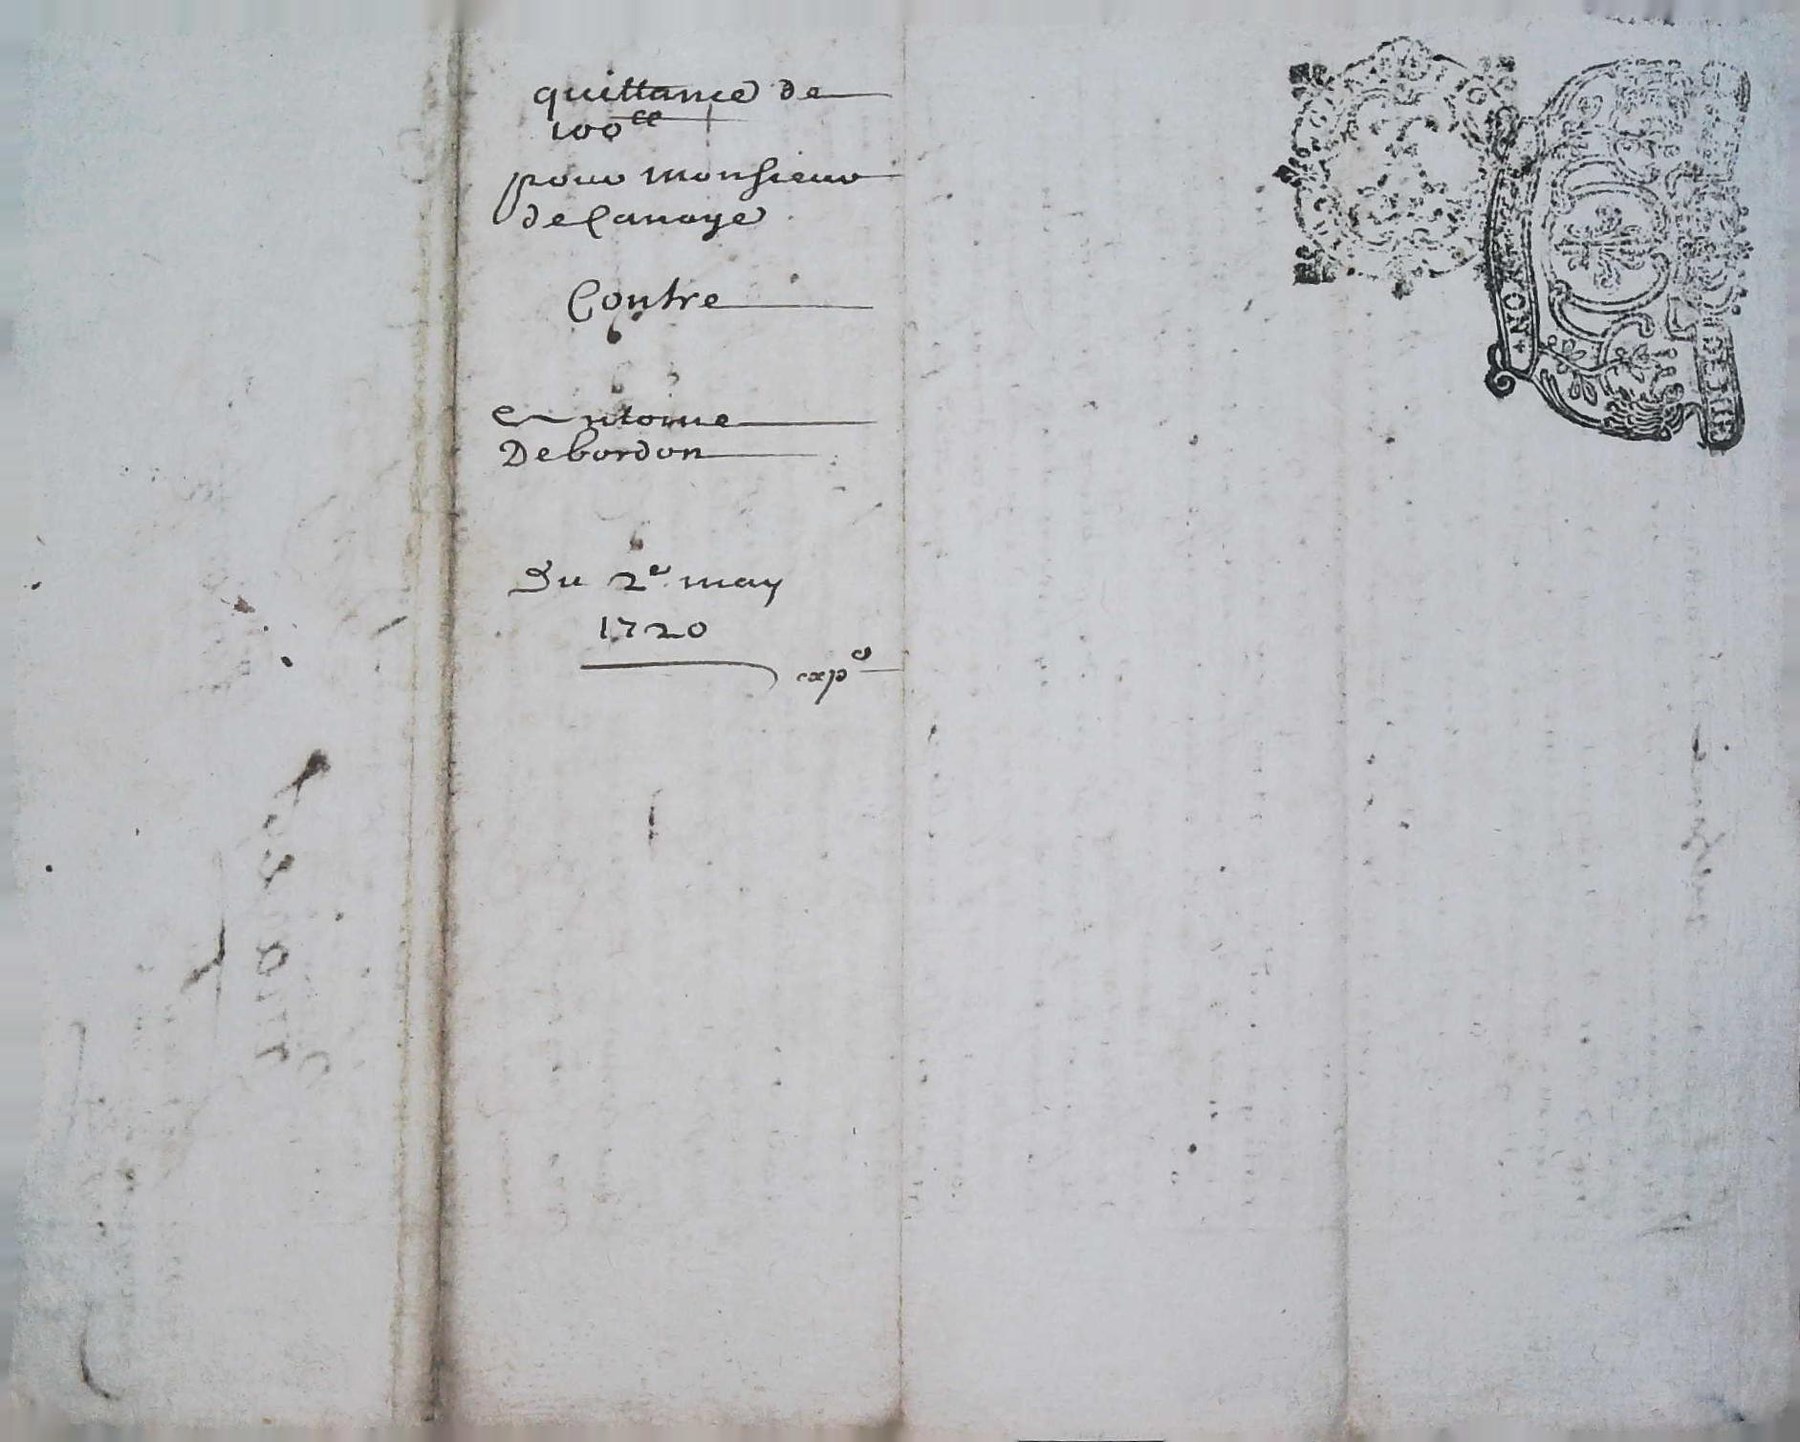 quittance de
100ll
pour monsieur
delanoye
Contre
Antoine
Debordon
Du 2e may
1720
expe